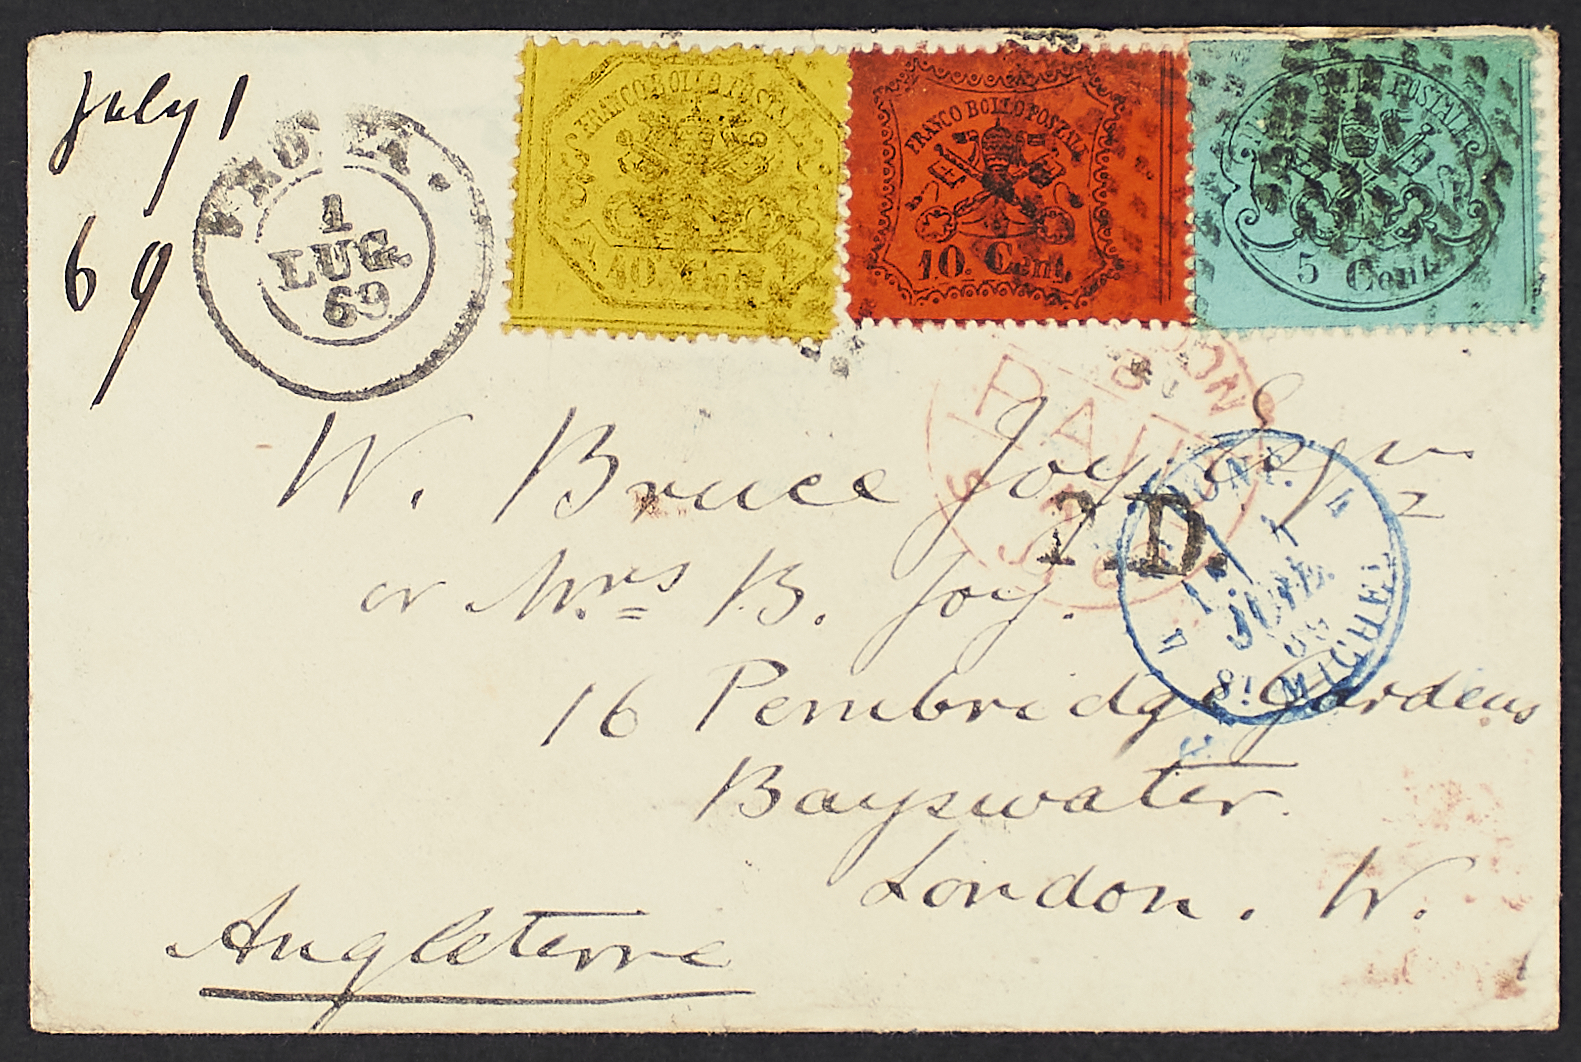 July 1
69
1
LUG.
69
FRANCO BOLLO POSTALE
40 Cent
FRANCO BOLLO POSTALE
10. Cent.
BOLLO POSTALE
5 Cent.
PAID
P.D.
JUIL
MICHEL
W. Bruce Joy Esqre
or Mrs B. Joy.
16 Pembridge Gardens
Bayswater.
London. W.
Angleterre